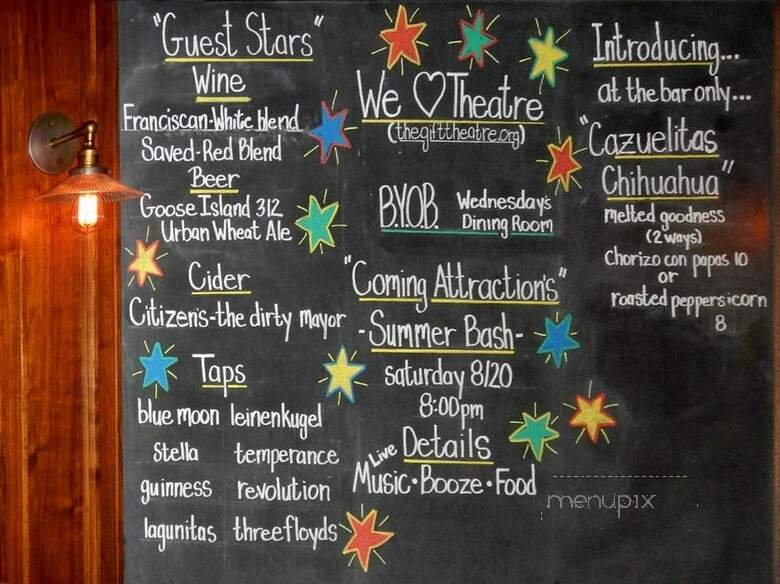 "Guest Stars"
Wine
Franciscan-White blend
Saved-Red Blend
Beer
Goose Island 312
Urban Wheat Ale
Cider
Citizen's-the dirty mayor
Taps
blue moon leinenkugel
Stella temperance
guinness revolution
lagunitas threefloyds
We ♡ Theatre
(thegifttheatre.org)
B.Y.O.B. Wednesday's
Dining Room
"Coming Attraction's"
-Summer Bash-
saturday 8/20
8:00pm
Details
Live
Music•Booze•Food
Introducing...
at the bar only...
"Cazuelitas
Chihuahua"
melted goodness
(2 ways)
Chorizo con papas 10
or
roasted peppers+corn
8
menupix